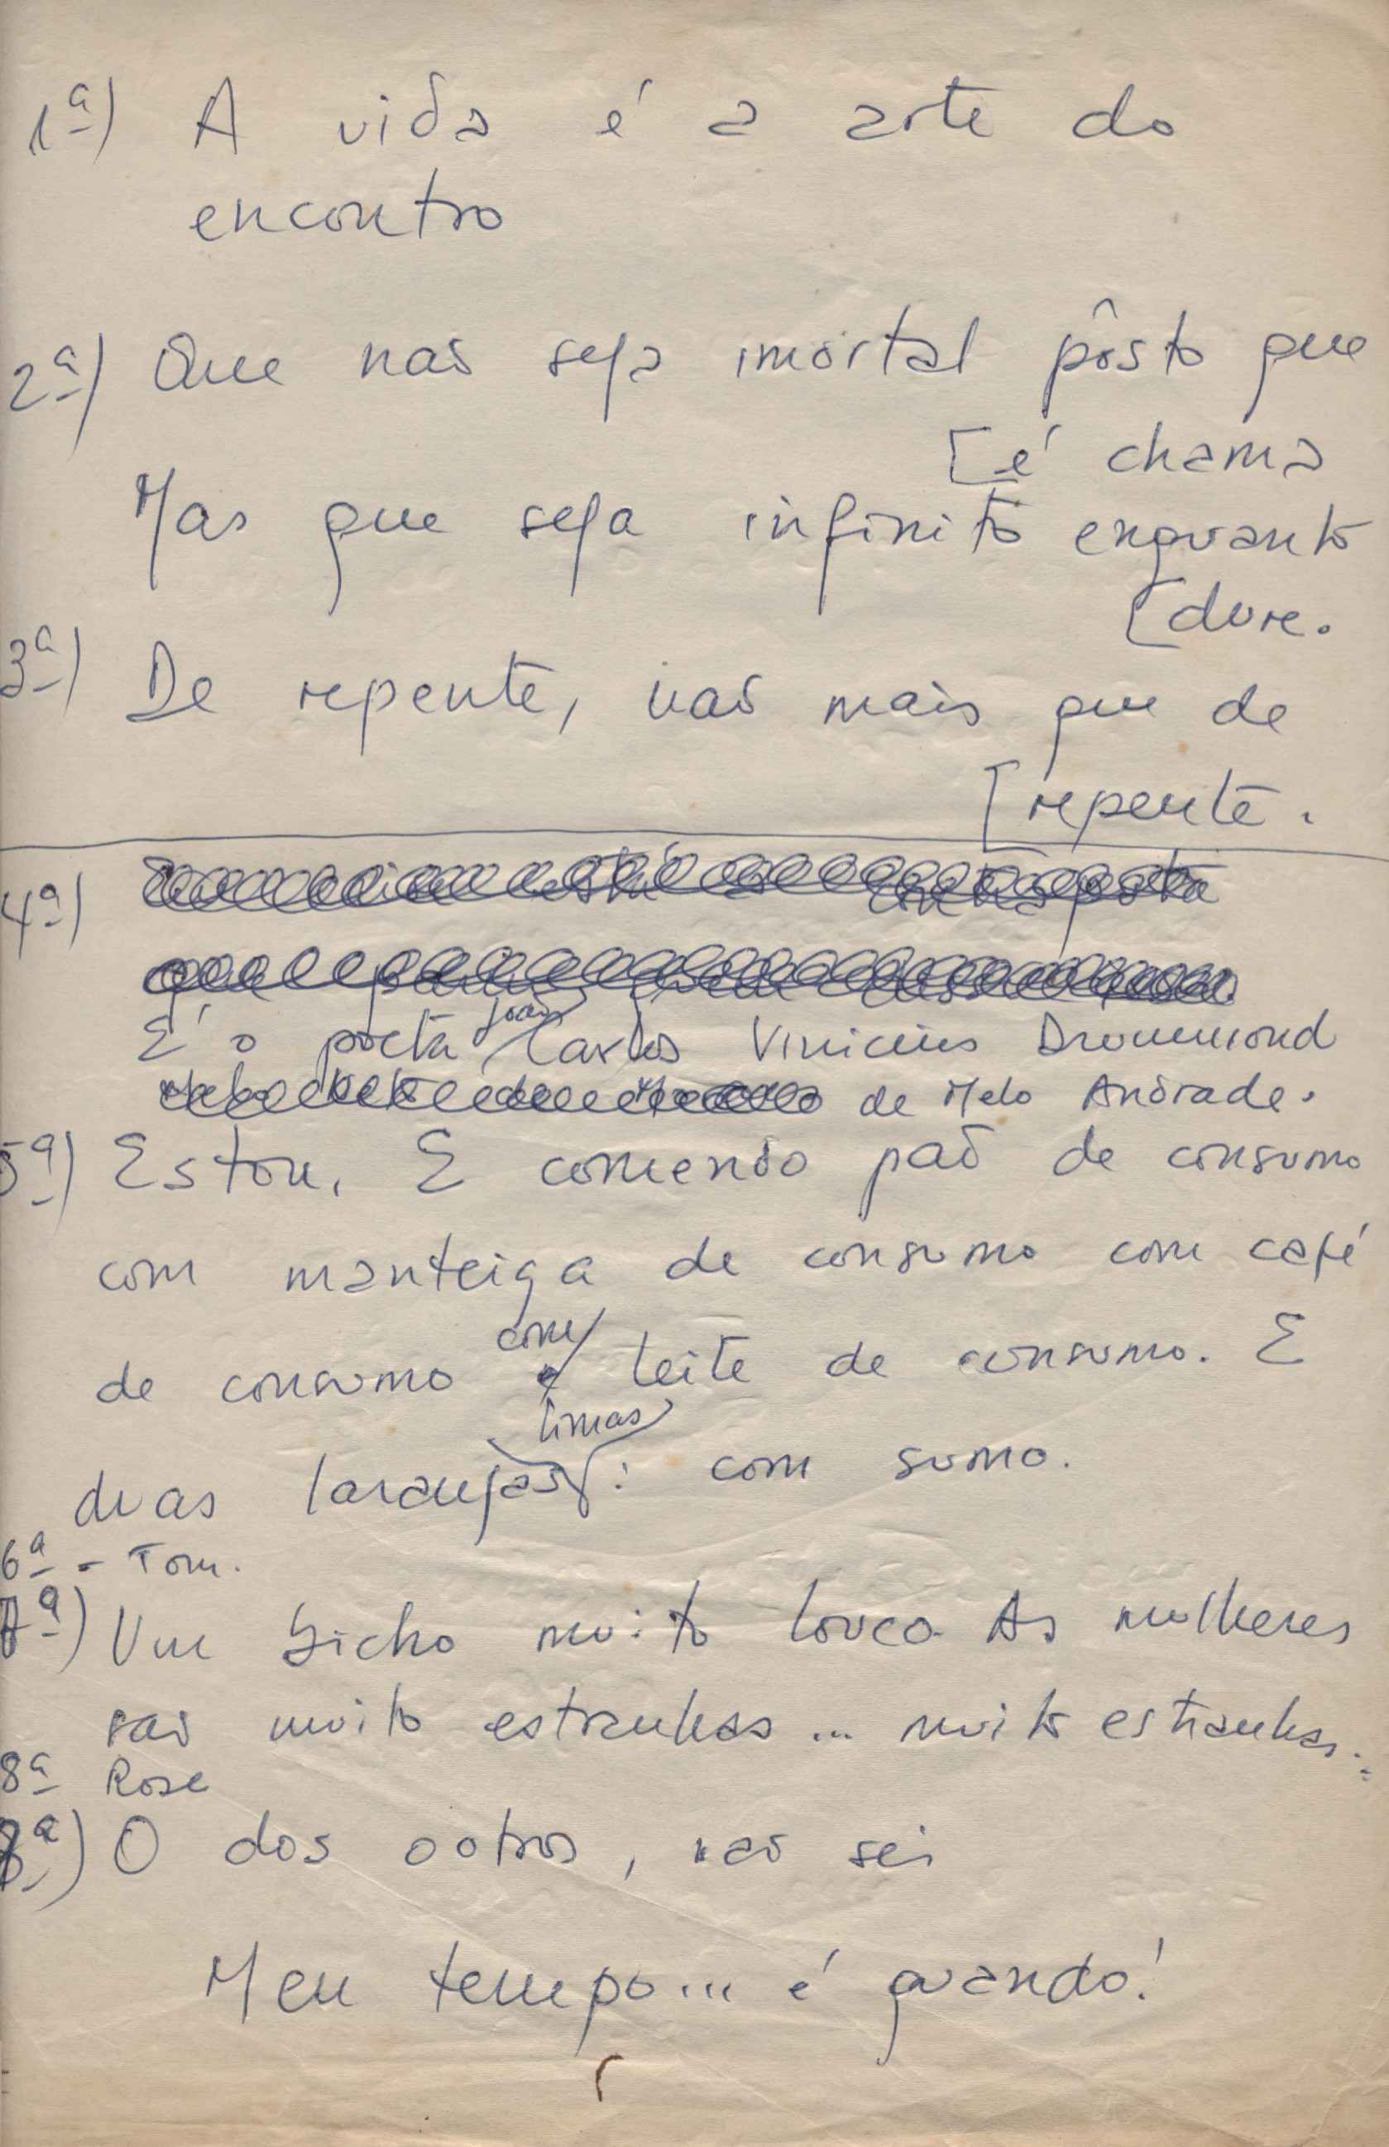 1ª) A vida é a arte do
encontro
2ª) Que não seja imortal pôsto que
[é chama
Mas que seja infinito enquanto
[dure.
3ª) De repente, não mais que de
[repente.
4ª)
É o poeta João Carlos Vinicius Drummond
de Melo Andrade.
5ª) Estou. E comendo pão de consumo
com manteiga de consumo com café
de consumo com leite de consumo. E
duas laranjas limas: com sumo.
6ª - Tom.
7ª) Um bicho muito louco. As mulheres
são muito estranhas... muito estranhas..
8ª Rose
ª) O dos outros, não sei
Meu tempo... é quando!